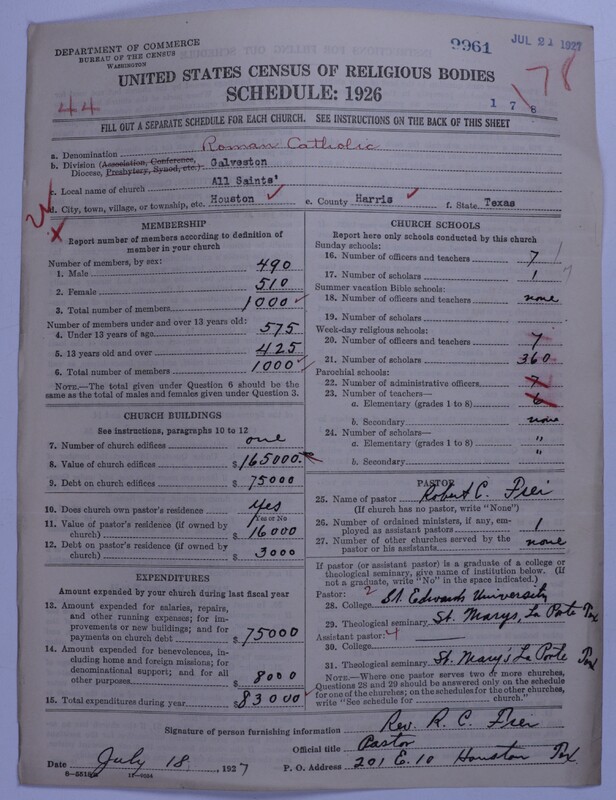 DEPARTMENT OF COMMERCE
BUREAU OF THE CENSUS
WASHINGTON
9961
JUL 21 1927
UNITED STATES CENSUS OF RELIGIOUS BODIES
SCHEDULE: 1926
44
178
78
FILL OUT A SEPARATE SCHEDULE FOR EACH CHURCH. SEE INSTRUCTIONS ON THE BACK OF THIS SHEET
a. Denomination Roman Catholic
b. Division (Association, Conference, Diocese, Presbytery, Synod, etc.) Galveston
c. Local name of church All Saints'
d. City, town, village, or township, etc. Houston e. County Harris f. State Texas
MEMBERSHIP
Report number of members according to definition of
member in your church
Number of members, by sex:
1. Male 490
2. Female 510
3. Total number of members 1000
Number of members under and over 13 years old:
4. Under 13 years of age 575
5. 13 years old and over 425
6. Total number of members 1000
NOTE.—The total given under Question 6 should be
same as the total of males and females given under Question 3.
CHURCH BUILDINGS
See instructions, paragraphs 10 to 12
7. Number of church edifices one
8. Value of church edifices $165000.
9. Debt on church edifices $75000
10. Does church own pastor's residence? yes
Yes or No
11. Value of pastor's residence (if owned by
church) $16000
12. Debt on pastor's residence (if owned by
church) $3000
EXPENDITURES
Amount expended by your church during last fiscal year
13. Amount expended for salaries, repairs,
and other running expenses; for im-
provements or new buildings; and for
payments on church debt $75000
14. Amount expended for benevolences, in-
cluding home and foreign missions; for
denominational support; and for all
other purposes $8000
15. Total expenditures during year $83000
CHURCH SCHOOLS
Report here only schools conducted by this church
Sunday schools:
16. Number of officers and teachers 7
17. Number of scholars 1
Summer vacation Bible schools:
18. Number of officers and teachers none
19. Number of scholars
Week-day religious schools:
20. Number of officers and teachers 7
21. Number of scholars 360
Parochial schools:
22. Number of administrative officers 7
23. Number of teachers—
a. Elementary (grades 1 to 8) 6
b. Secondary none
24. Number of scholars—
a. Elementary (grades 1 to 8) "
b. Secondary "
PASTOR
25. Name of pastor Robert C. Frei
(If church has no pastor, write "None")
26. Number of ordained ministers, if any, em-
ployed as assistant pastors 1
27. Number of other churches served by the
pastor or his assistants none
If pastor (or assistant pastor) is a graduate of a college or
theological seminary, give name of institution below. (If
not a graduate, write "No" in the space indicated.)
Pastor: 2
28. College St. Edwards University
29. Theological seminary St. Marys, La Porte Tex
Assistant pastor: 4
30. College
31. Theological seminary St. Mary's La Porte Tex
NOTE.—Where one pastor serves two or more churches,
Questions 28 and 29 should be answered only on the schedule
for one of the churches; on the schedules for the other churches,
write "See schedule for church."
Signature of person furnishing information Rev. R. C. Frei
Official title Pastor
Date July 18, 1927 P. O. Address 201 E. 10 Houston Tex